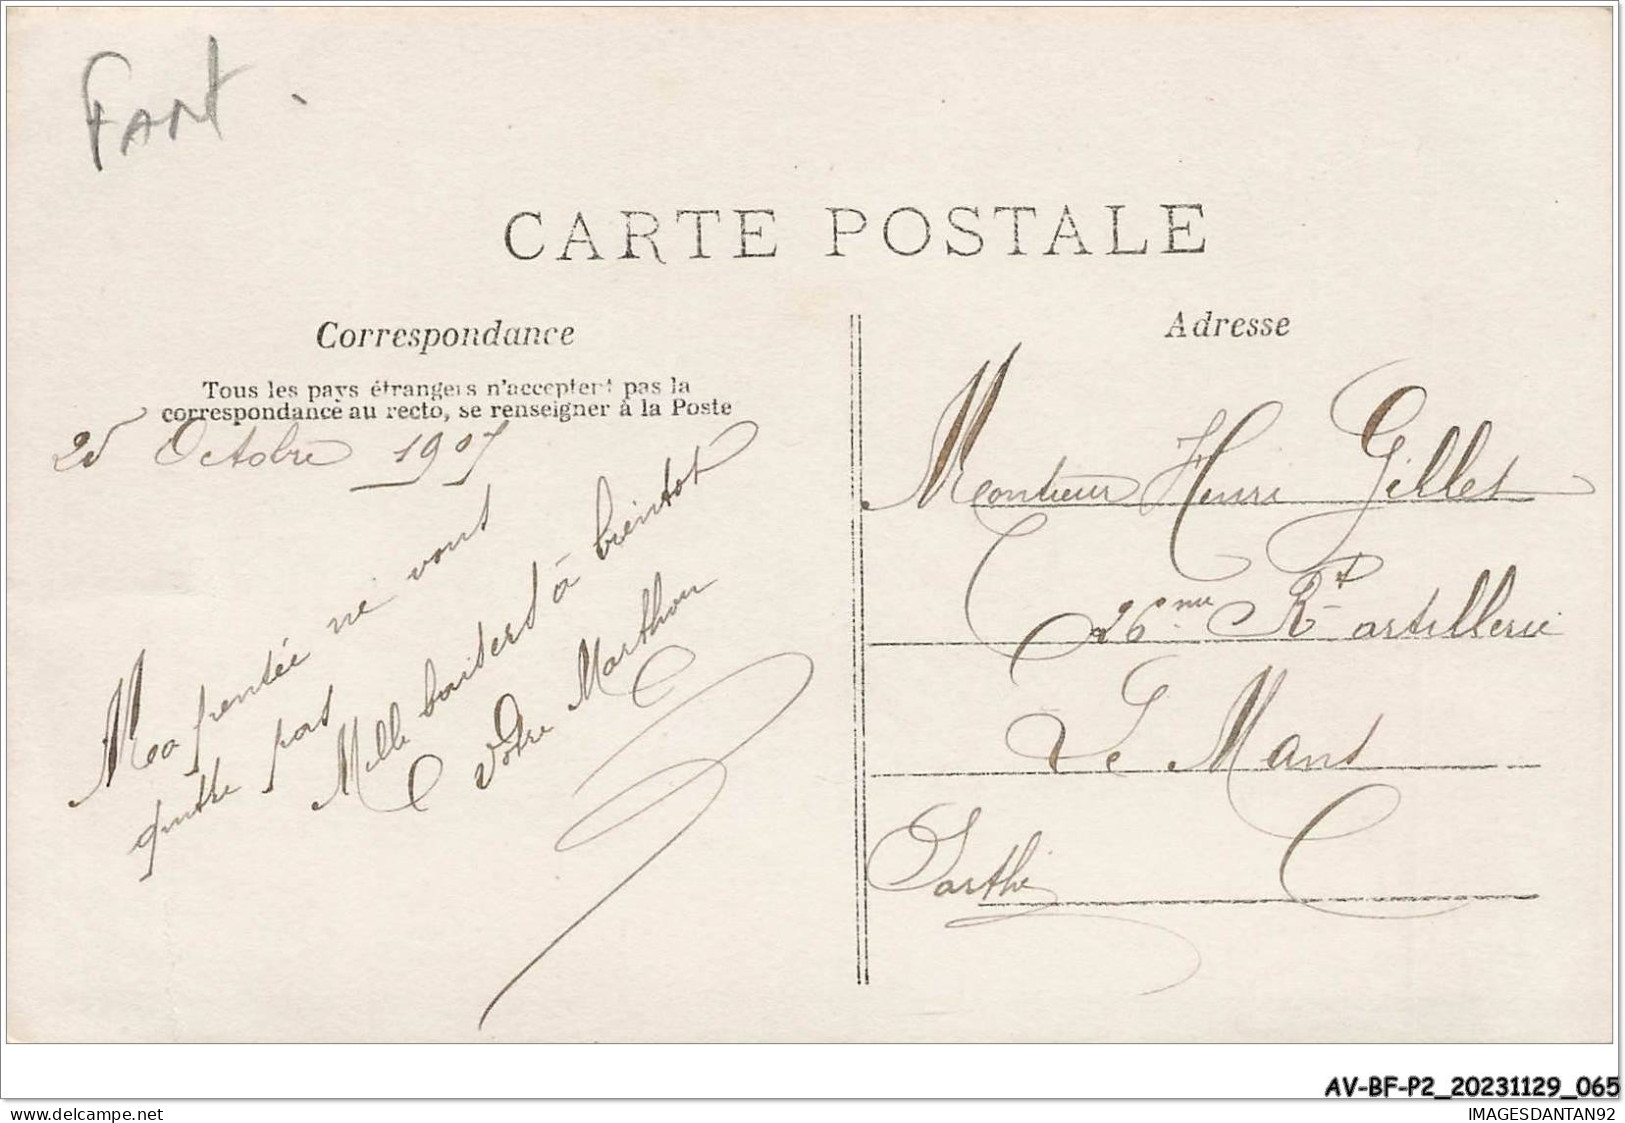 Fant.
CARTE POSTALE
Correspondance
Tous les pays étrangers n'acceptent pas la
correspondance au recto, se renseigner à la Poste
25 Octobre 1907
Ma pensée ne vous
quitte pas
Mille baisers à bientot
Votre Marthon
Adresse
Monsieur Henri Gillet
26eme Rt artillerie
Le Mans
Sarthe
AV-BF-P2_20231129_065
delcampe.net
IMAGESDANTAN92